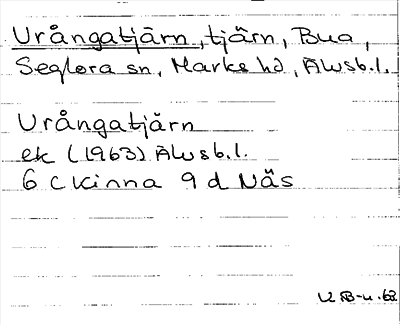 Urångatjärn, tjärn, Bua,
Seglora sn, Marks hd, Älvsb.l.
Urångatjärn
ek (1963) Älvsb.l.
6 C Kinna 9 d Näs